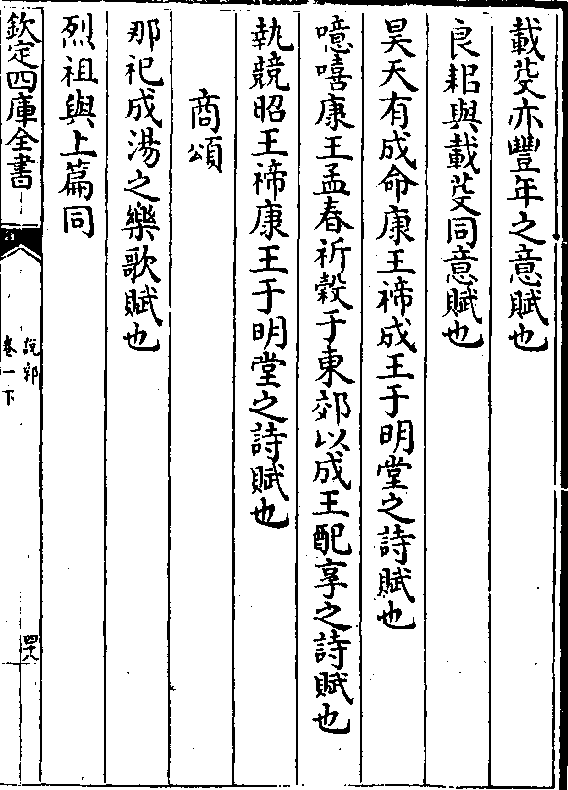 載芟亦豐年之意賦也
良耜與載芟同意賦也
昊天有成命康王禘成王于明堂之詩賦也
噫嘻康王孟春祈穀于東郊以成王配享之詩賦也
執競昭王禘康王于明堂之詩賦也
商頌
那祀成湯之樂歌賦也
烈祖與上篇同
欽定四庫全書
說郛
卷一下
四八